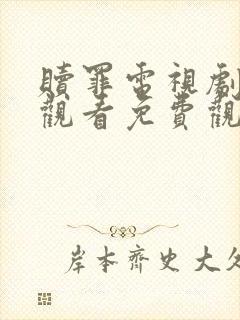 贖罪電視劇
觀看免費觀
岸本齊史大